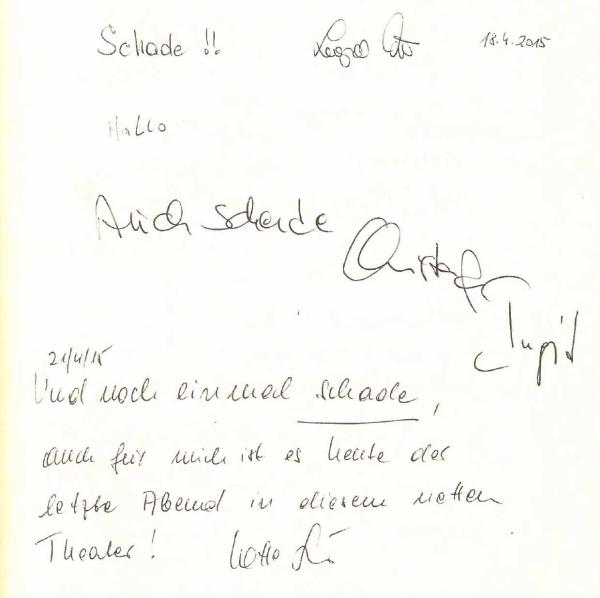 Schade !! 18.4.2015
Hallo
Auch Schade
Christoph
Ingrid
21/4/15
Und noch einmal schade,
auch für mich ist es heute der
letzte Abend in diesem netten
Theater!